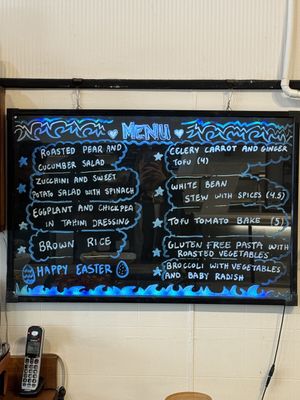 MENU
ROASTED PEAR AND
CUCUMBER SALAD
ZUCCHINI AND SWEET
POTATO SALAD WITH SPINACH
EGGPLANT AND CHICKPEA
IN TAHINI DRESSING
BROWN RICE
HAPPY EASTER
CELERY CARROT AND GINGER
TOFU (4)
WHITE BEAN
STEW WITH SPICES (4.5)
TOFU TOMATO BAKE (5)
GLUTEN FREE PASTA WITH
ROASTED VEGETABLES
BROCCOLI WITH VEGETABLES
AND BABY RADISH